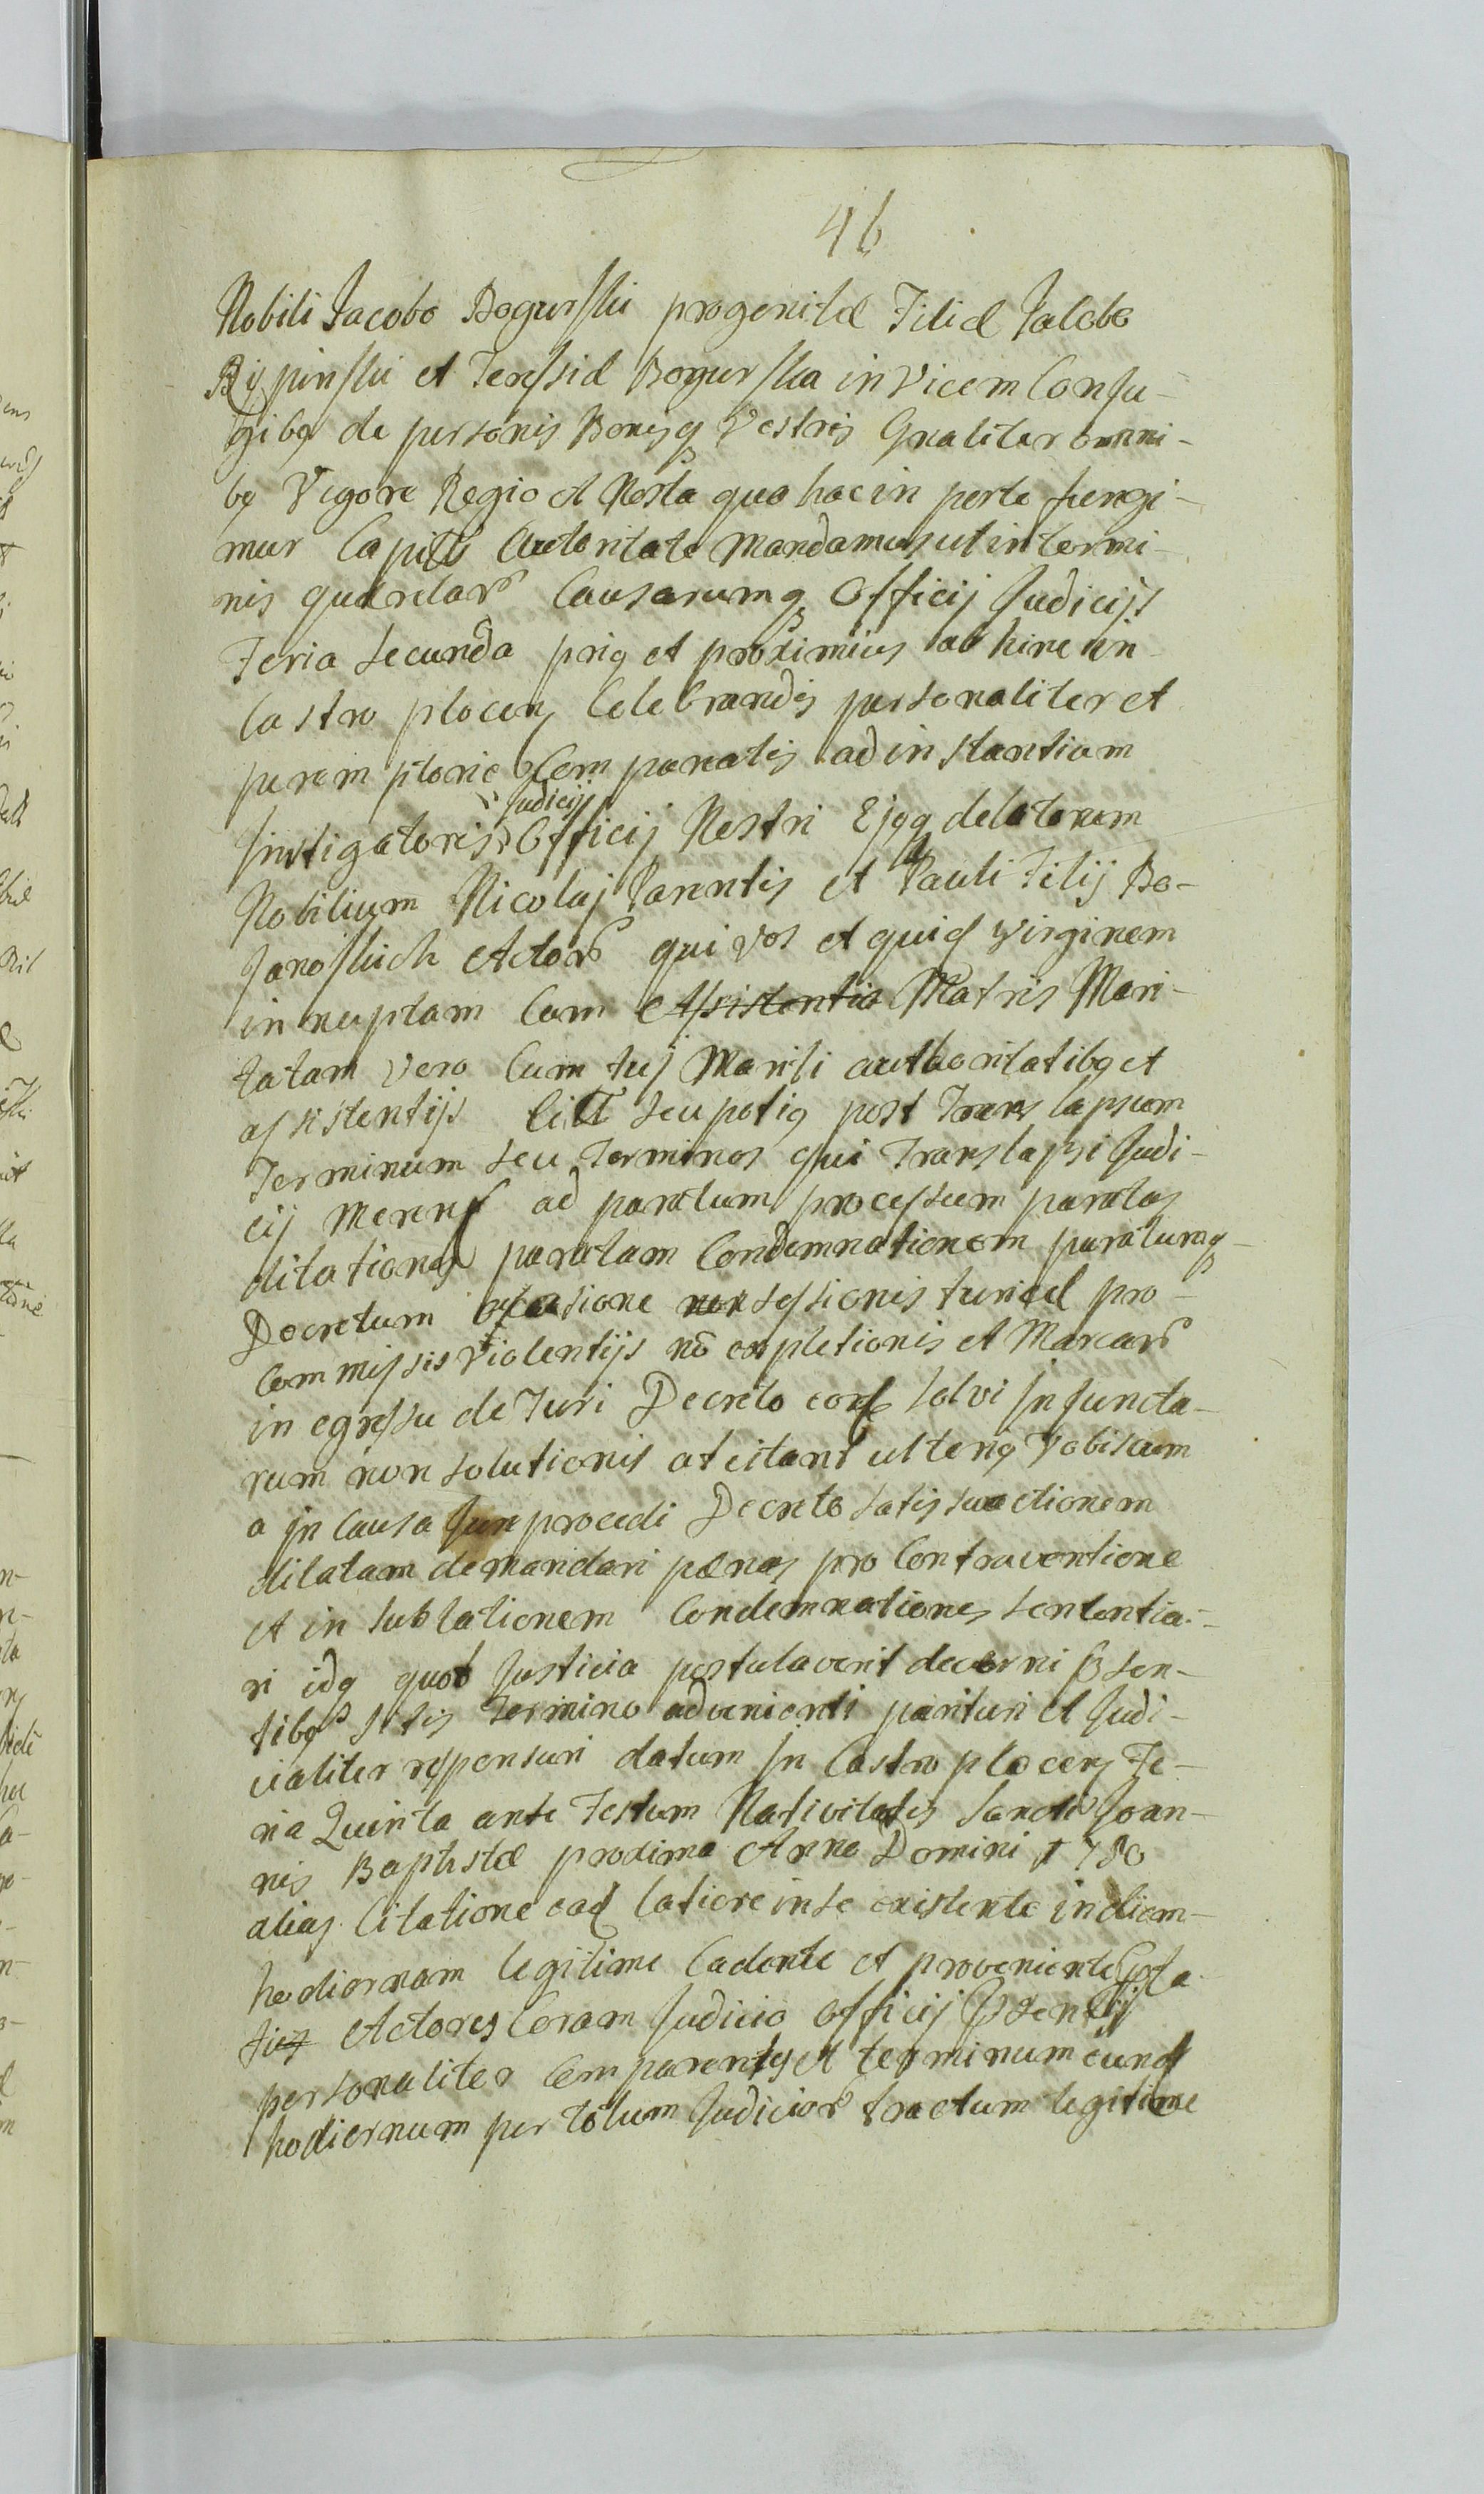 46
Nobili Jacobo Bogurski progenitæ Filiæ Jacobo
Rypinski et Teressiæ Bogurska invicem Conju-
gibq de personis Bonisq Vestris Gnaliter omni-
bq Vigore Regio et Nosta quo hac in parte fungi-
mur Capitli Autoritate Mandamus ut in termi-
nis quærelaru Causarumq Officij Judicijs
Feria Secunda priq et proximius ab hinc in
Castro plocen Celebrandis personaliter et
peremptorie Compareatis ad instantiam
Judicij
Instigatoris Officij Nostri Ejqq delatorum
Nobilium Nicolaj Parentis et Pauli Filij Bo-
janoskich Actoru qui vos et quid Virginem
in nuptam Cum Assistentia Matris Mari-
tatam vero Cum tuj Mariti authoritatibq et
assistentijs Citt seu potiq post Translapsum
Terminum seu Terminos qui Translapsi Judi-
cij Meren ad paratum processum paratas
dilationes paratam Condemnationem paratumq
Decretum occasione non sessionis turris pro
Commissis Violentijs no expletionis et Marcaru
in egressu de Turi Decreto eod solvi Injuncta-
rum non solutionis at citant ulteriq Vobiscum
a in Causa Jure procedi Decreto satisfactionem
dilatam demandari pænas pro Contraventione
et in sublationem Condemnationes sententia-
ri idq quod Justicia postulaverit decerni Psen-
tibq sitis Termino advenienti parituri et Judi-
cialiter responsuri datum In Castro plocen Fe-
ria Quinta ante Festum Nativitatis Sancti Joan-
nis Baptistæ proxima Anno Domini 1780
alias Citatione ead latiore in se existente in diem
hodiernam legitime Cadente et proveniente
Actores Coram Judicio Officij Psentij
personaliter Comparentes et terminum eund
hodiernum per totum Judicioru tractum legitime